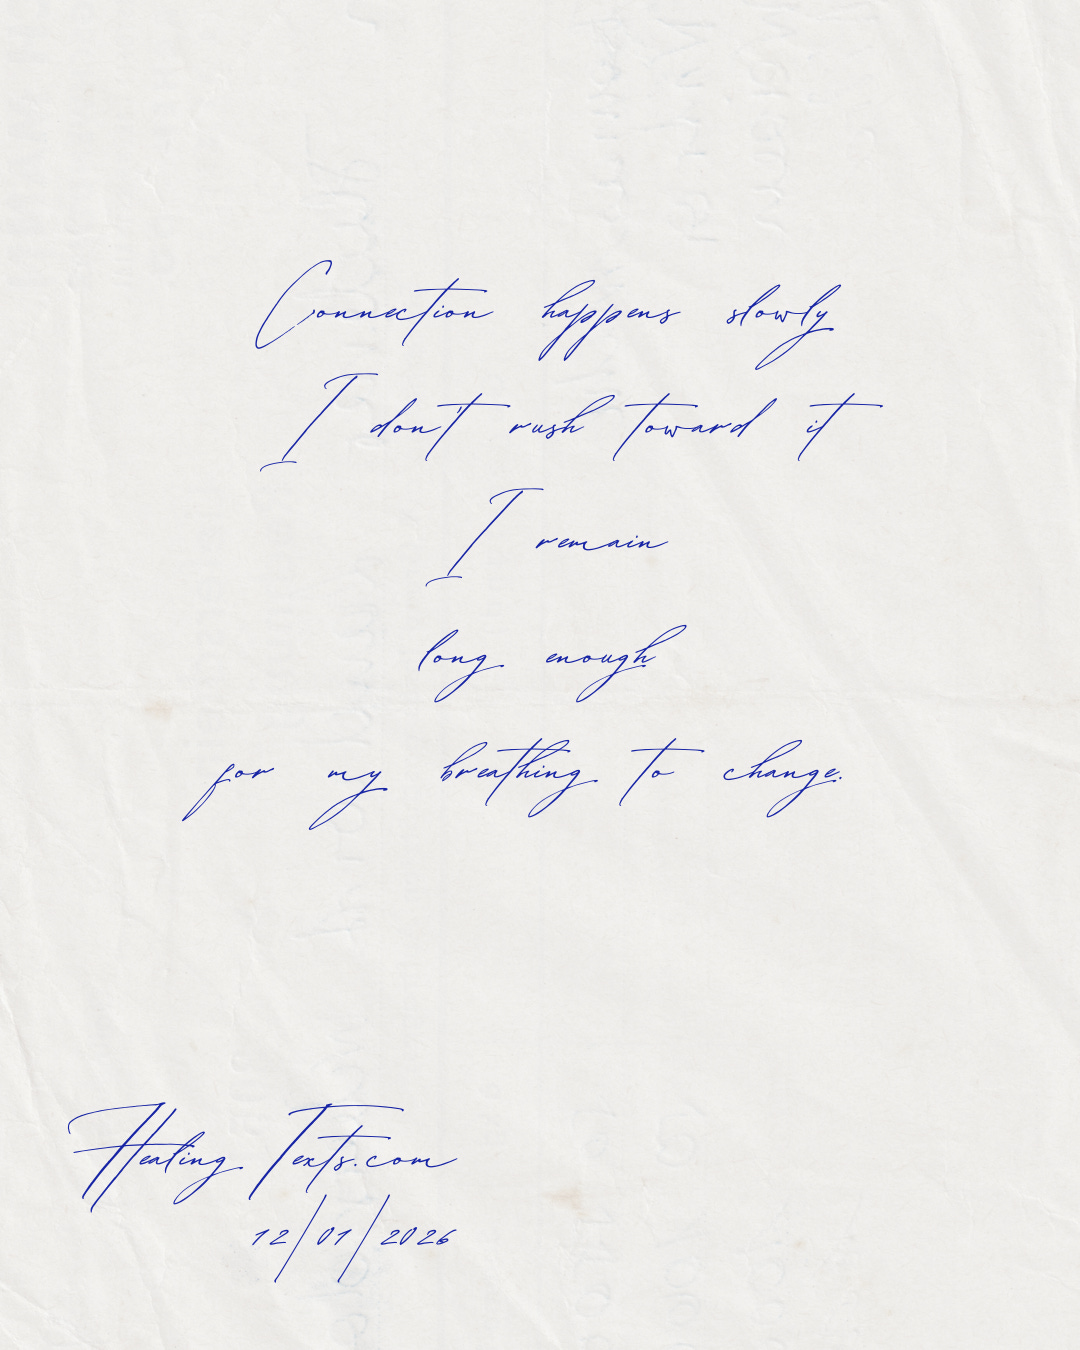 Connection happens slowly
I don't rush toward it
I remain
long enough
for my breathing to change.
Healing Texts.com
12/01/2026